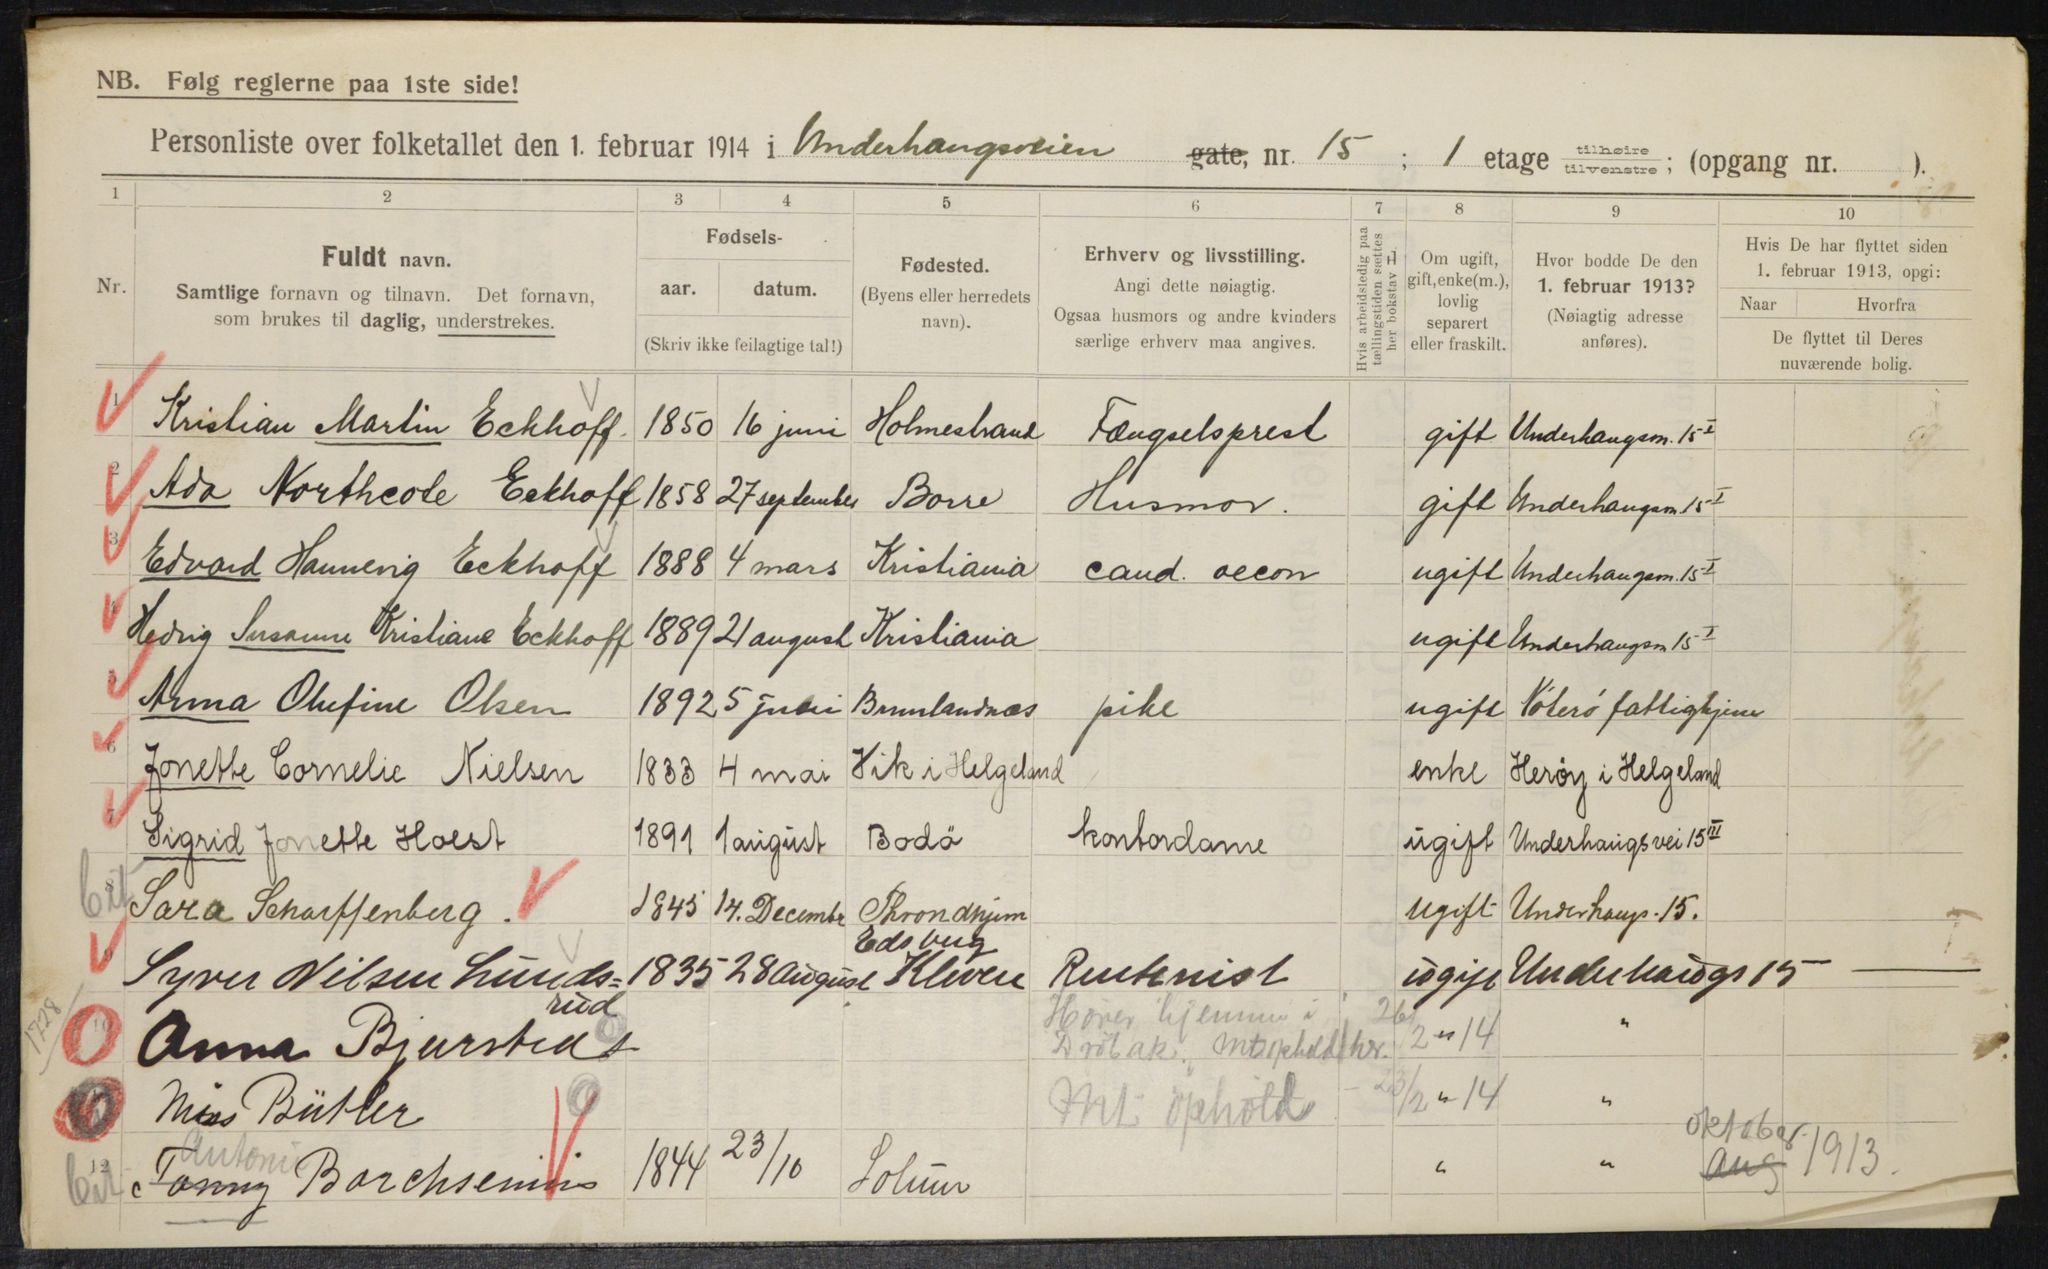 NB. Følg reglerne paa 1ste side!
Personliste over folketallet den 1. februar 1914 i Underhaugsveien gate, nr. 15 ; 1 etage tilhøire tilvenstre ; (opgang nr. ).
1 2 3 4 5 6 7 8 9 10
Nr.
Fuldt navn.
Samtlige fornavn og tilnavn. Det fornavn,
som brukes til daglig, understrekes.
Fødsels-
aar. datum.
(Skriv ikke feilagtige tal!)
Fødested.
(Byens eller herredets
navn).
Erhverv og livsstilling.
Angi dette nøiagtig.
Ogsaa husmors og andre kvinders
særlige erhverv maa angives.
Hvis arbeidsledig paa
tællingstiden sættes
her bokstav L
Om ugift,
gift, enke(m.),
lovlig
separert
eller fraskilt.
Hvor bodde De den
1. februar 1913?
(Nøiagtig adresse
anføres).
Hvis De har flyttet siden
1. februar 1913, opgi:
Naar Hvorfra
De flyttet til Deres
nuværende bolig.
1 Kristian Martin Eckhoff. 1850 16 juni Holmestrand Fængselsprest gift Underhaugsv. 15 I
2 Ada Northcote Eckhoff 1858 27 september Borre Husmor. gift Underhaugsv. 15 I
3 Edvard Hannevig Eckhoff 1888 4 mars Kristiania cand. oecon ugift Underhaugsv. 15 I
4 Hedvig Susanne Kristiane Eckhoff 1889 21 august Kristiania ugift Underhaugsv 15 I
5 Anna Olufine Olsen 1892 5 juni Brunlandnæs pike ugift Nøterø fattighjem
6 Jonette Cornelie Nielsen 1833 4 mai Vik i Helgeland enke Herøy i Helgeland
7 Sigrid Jonette Holst 1891 1 august Bodö kontordame ugift Underhaugsvei 15 III
8 Sara Scharffenberg. 1845 14. Decembr Throndhjem ugift Underhaugs. 15.
Edsberg
9 Syver Nilsen Lunds= 1835 28 august Kleven Rentenist ugift Underhaugs 15
rud
1728
10 Anna Bjursteds Hører hjemme i 26/2 - 14 "
Drøbak. Mt ophold her.
Miss Bütler Mt. ophold - 23/2 - 14 "
Antoni oktober
12 Fanny Borchsenius 1844 23/10 Solum " " aug 1913.